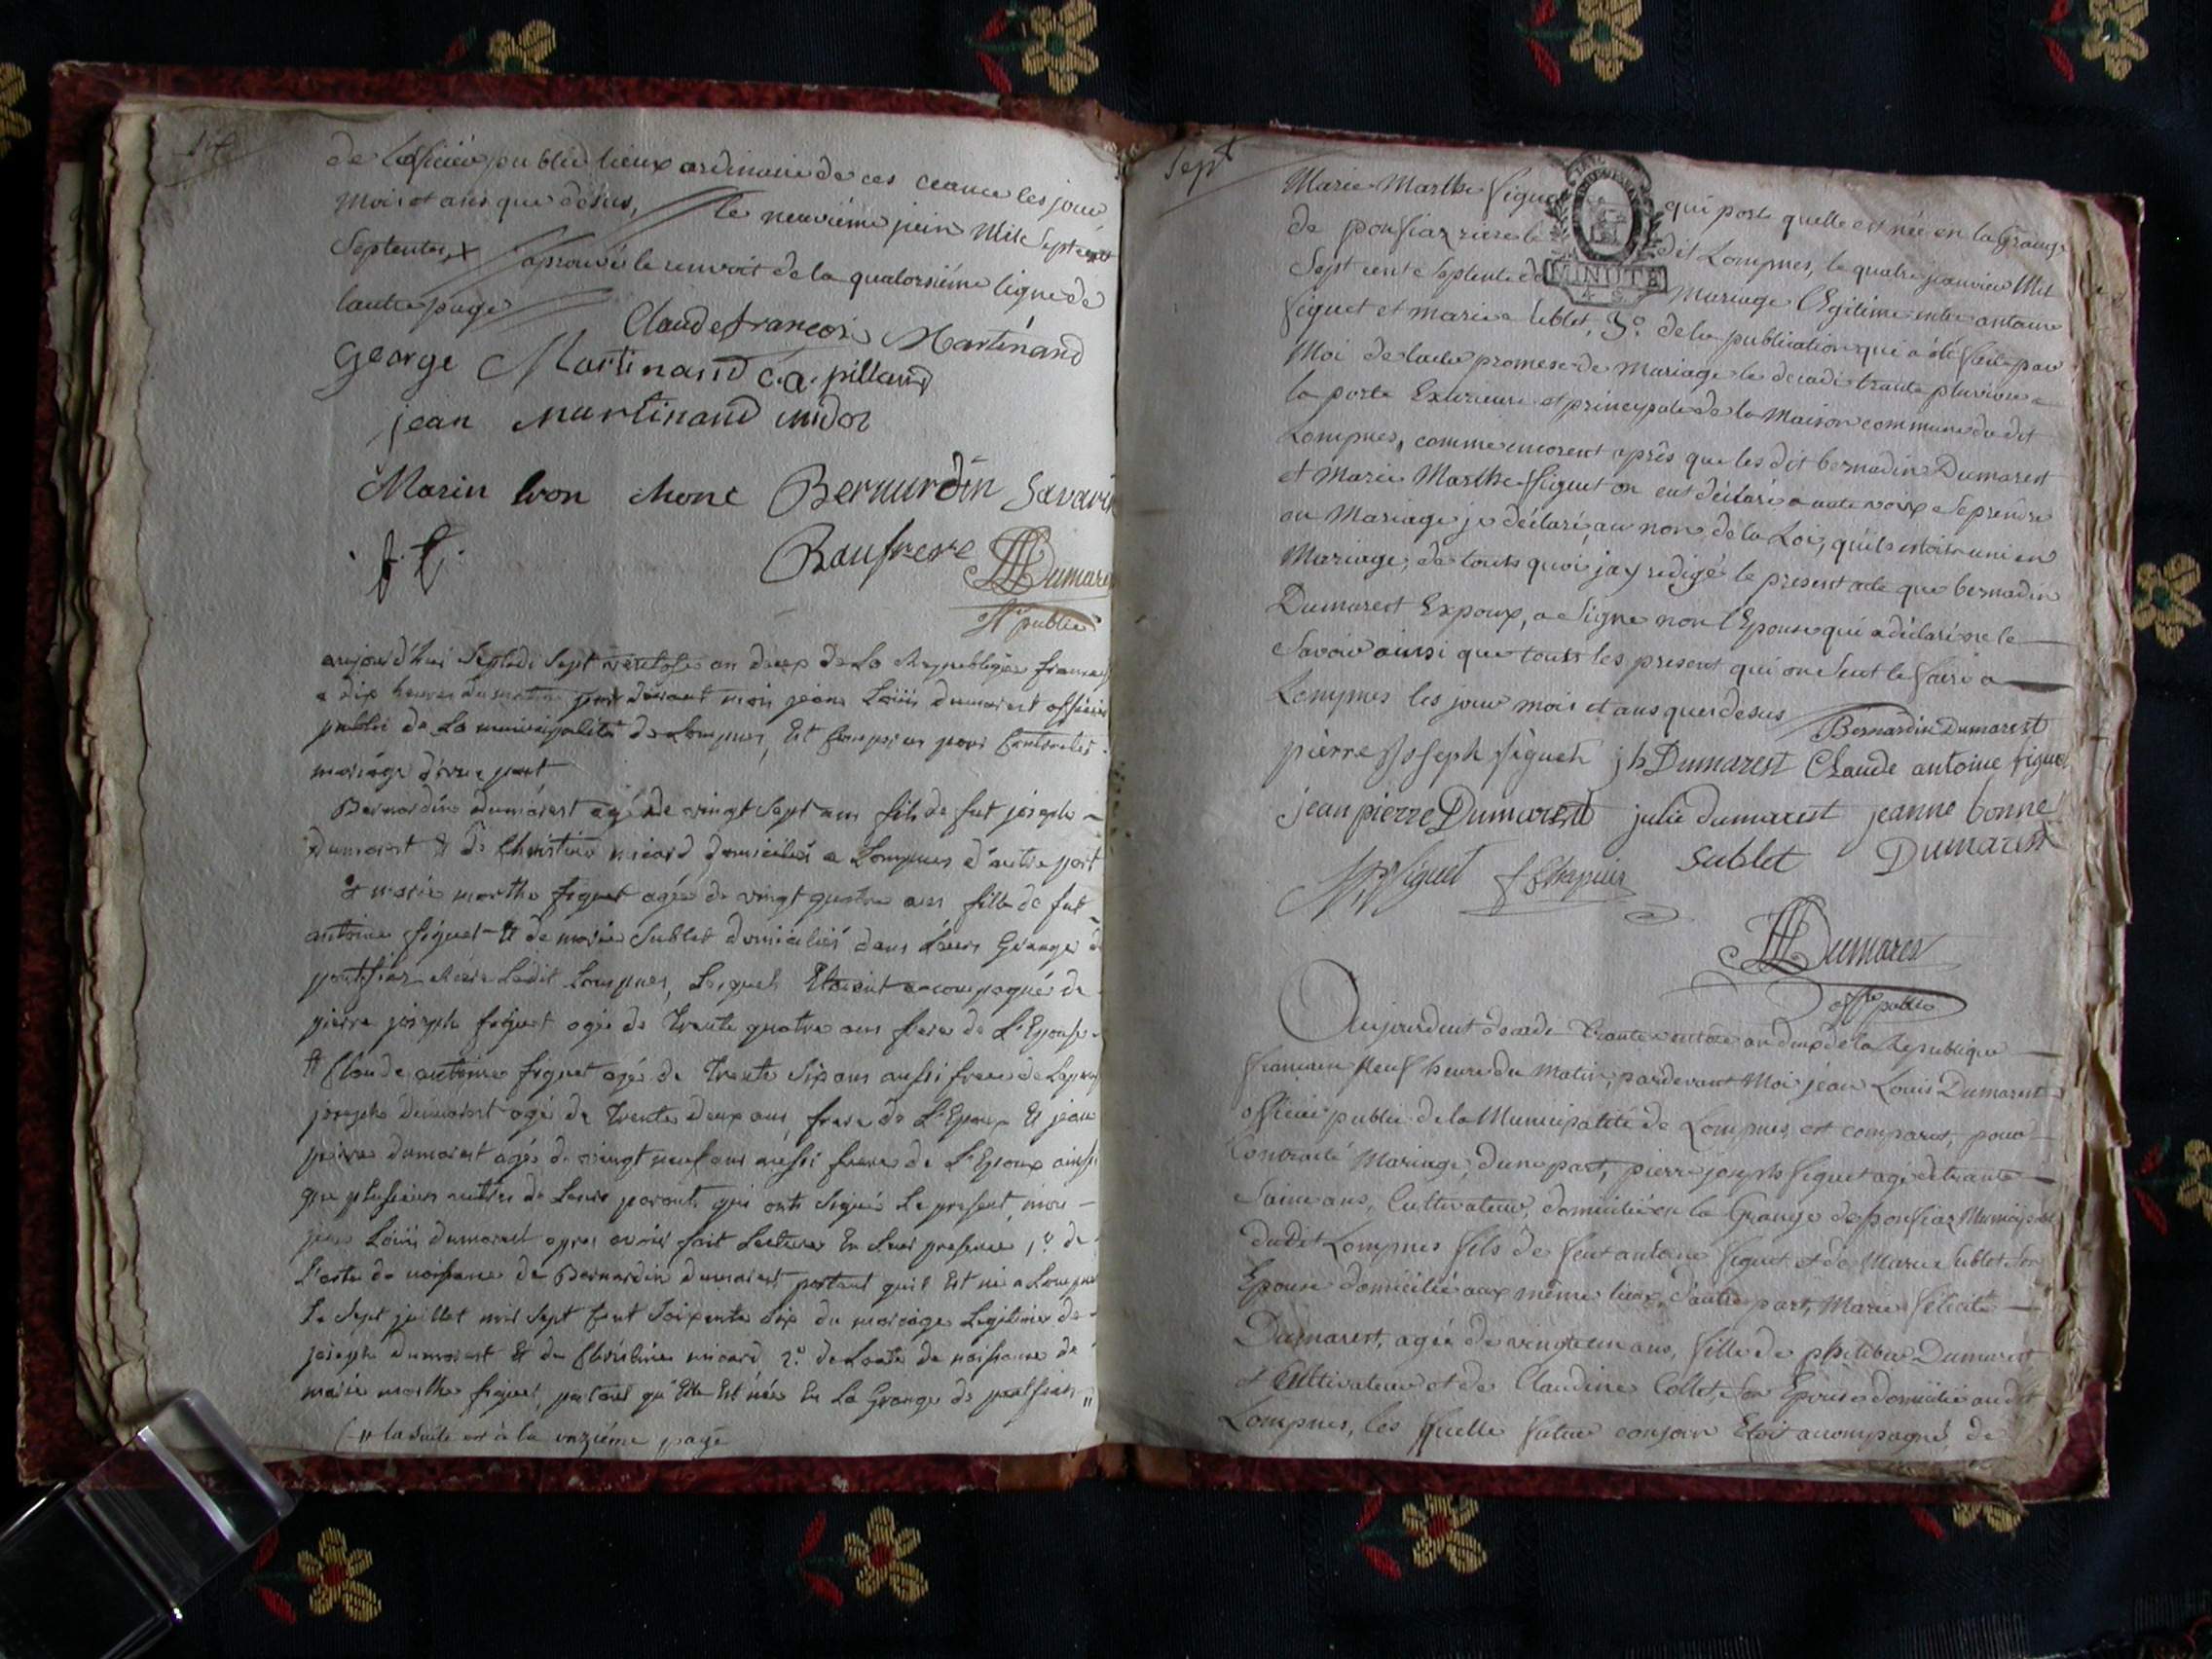 de Lofficier publie lieux ordinaire de ces ceance les jour
Mois et ans que desus, le neuvieme juin Mile Septcent
Septentex aprouvé le renvoit de la quatorsiéme ligne de
lautre page
Claude francois Martinand
George Martinand C. a. pilland
jean Martinand
Marin bon Bernardin Savarin
f. t.
Baufrere JLDumarest
off publie
aujourd'hui Septidi Sept ventose an deux de La Republique francaise
a dix heures du matin par devant moi jean Loüis dumarest officier
public de La municipalité de Lompnes, Est Comparus pour Contracter
mariage d'une part
Bernardin dumarest agé de vingt Sept ans fils de fut joseph
dumarest Et de Christine micard domiciliés a Lompnes d'autre part
Et marie marthe figuet agée de vingt quatre ans fille de fut
antoine figuet Et de marie Sublet domiciliés dans Leurs Grange de
pontfiaz Rière Ledit Lompnes, Lesquels Etaient accompagnés de
pierre joseph figuet agé de trente quatre ans frere de L'Epouse
Et Claude antoine figuet agé de trente Six ans aussi frere de Lepouse
joseph dumarest agé de trente deux ans, frere de L'Epoux Et jean
pierre dumarest agé de vingt neuf ans aussi frere de L'Epoux ainsi
que plusieurs autres de Leurs parents qui ont Signé Le present, moi
jean Loüis dumarest apres avoir fait Lecture En Leur presence 1.° de
L'acte de naissance de Bernardin dumarest portant quil Est né a Lompnes
Le Sept juillet mil Sept Cent Soixante Six du mariage Legitime de
joseph dumarest Et de Christine micard 2.° de Lacte de naissance de
marie marthe figuet, portant qu'Elle Est née En La Grange de pontfiaz "
(" la suite est à la onziéme page
Sept
Marie Marthe figuet qui porte quelle est née en la Grange
de ponfiaz riere le dit Lompnes, le quatre janvier Mil
Sept cent Septente du Mariage légitime entre antoine
MINUTE
figuet et marie Sublet, 3.° de la publication qui a été faite par
Moi de ladite promese de Mariage le decadi trante pluviose a
la porte Exterieure et principale de la Maison commune du dit
Lompnes, comme encorent aprês que les dit bernadin Dumarest
et Marie Marthe figuet on eut déclaré a aute voix Seprendre
en Mariage je déclaré, au non de la Loi, quils etoit uni en
Mariage, de touts quoi jay redigé le present acte que bernadin
Dumarest Expoux, a Signe non l'Epouse qui a déclaré ne le
Savoir ainsi que touts les present qui on Seut le faire a
Lompnes les jour mois et ans que desus Bernardin Dumarest
pierre joseph figuet jh Dumarest Claude antoine figuet
jean pierre Dumarest julie dumarest jeanne bonne
Sublet Dumarest
figuet
JLDumarest
offr public
Aujourduit decadi trante ventose an deux de la Republique
francaise neuf heure du Matin, pardevant Moi jean Louis Dumarest
officier public de la Municipalité de Lompnes, est comparut, pour
Contracté Mariage, dune part, pierre joseph figuet agé de trante
ans, Cultivateur, domicilié en la Grange de ponfiaz
dudit Lompnes fils de feut antoine figuet et de Marie Sublet Son
Epouse domicilié aux même lieux, d'autre part, Marie félicité
Dumarest, agée de vingt un ans, fille de philiber Dumarest
et Cultivateur et de Claudine Collet, Son Epouse domicilié au dit
Lompnes, les quelle futur conjoin Etoit acompagné de